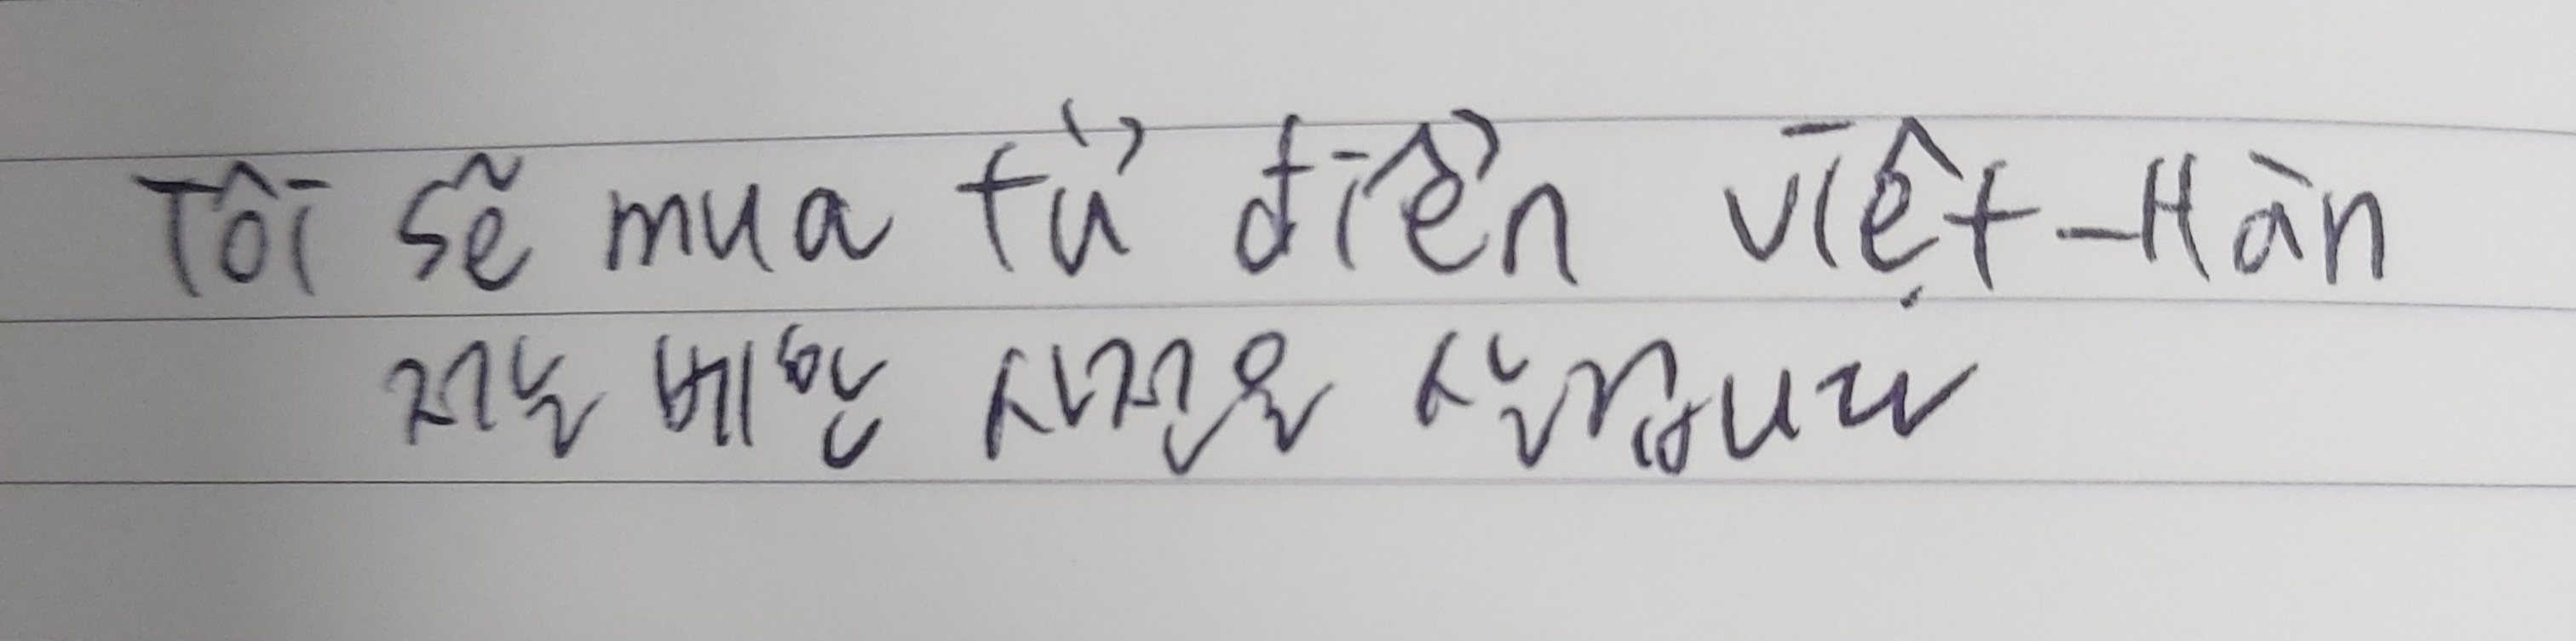 Tôi sẽ mua từ điển việt-Hàn
저는 베한 사전을 살겁니다